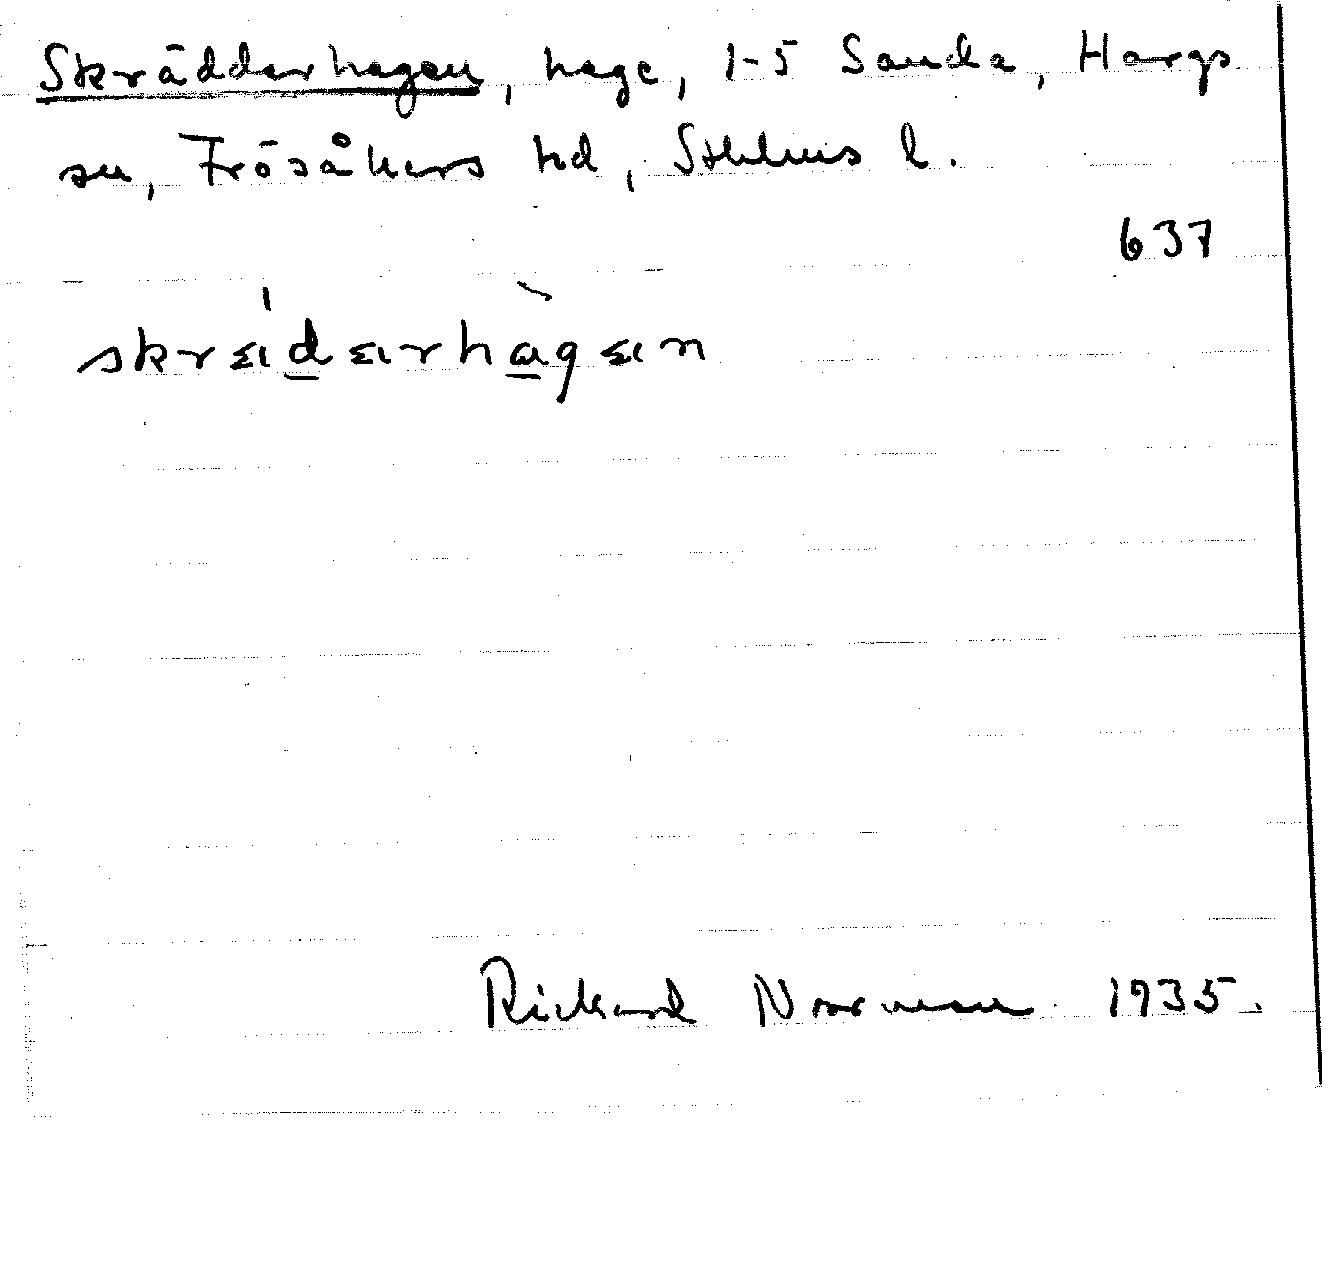 Skräddarhagen, hage, 1-5 Sanda, Hargs
sn, Frösåkers hd, Sthlms l.
637
skrɛdɛrhagɛn
Rickard Norrman 1935.